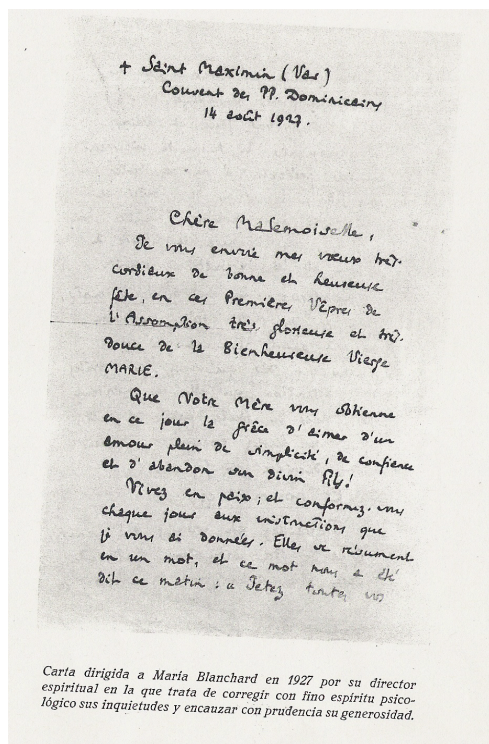 + Saint Maximin (Var)
Couvent des PP. Dominicains
14 août 1927.
Chère Mademoiselle,
Je vous envoie mes vœux très-
cordiaux de bonne et heureuse
fête, en ces Premières Vêpres de
l'Assomption très glorieuse et très-
douce de la Bienheureuse Vierge
MARIE.
Que Votre Mère vous obtienne
en ce jour la grâce d'aimer d'un
amour plein de simplicité, de confiance
et d'abandon son divin Fils!
Vivez en paix; et conformez-vous
chaque jour aux instructions que
je vous ai données. Elles se résument
en un mot, et ce mot nous a été
dit ce matin : « Jetez toutes vos
Carta dirigida a María Blanchard en 1927 por su director
espiritual en la que trata de corregir con fino espíritu psico-
lógico sus inquietudes y encauzar con prudencia su generosidad.